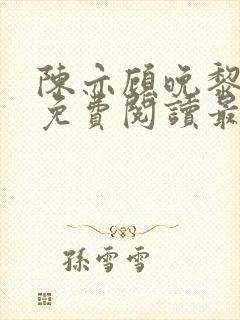 陳亦顧晚黎
免費閱讀最
孫雪雪